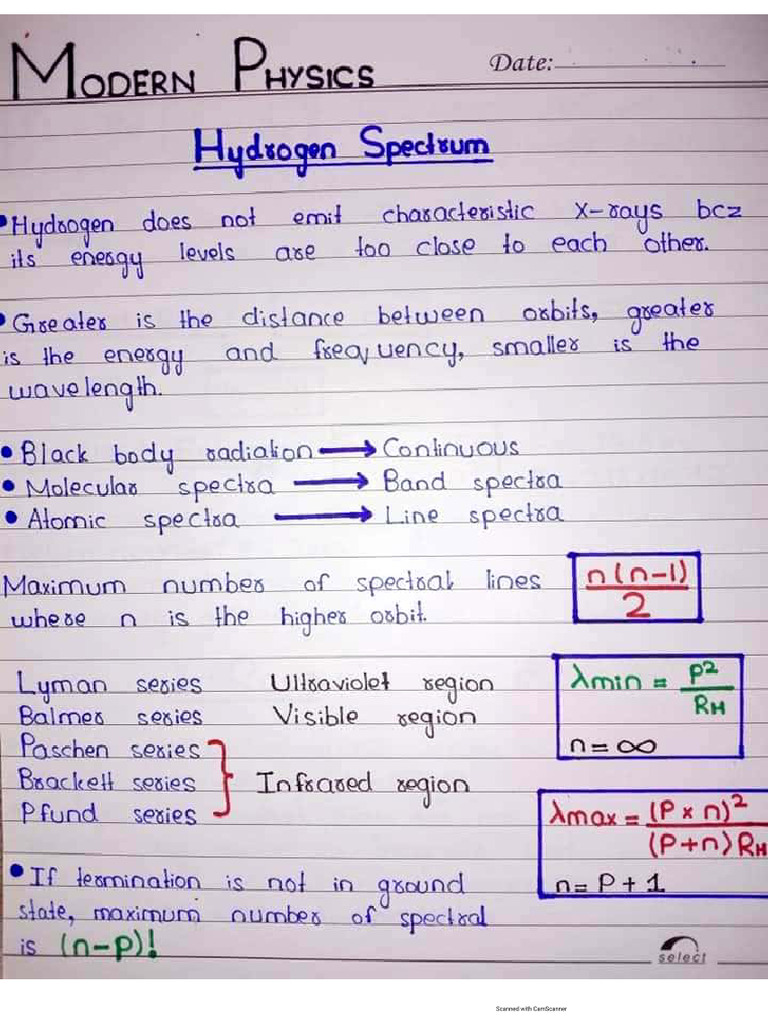 MODERN PHYSICS
Date:
Hydrogen Spectrum
• Hydrogen does not emit characteristic X-rays bcz
its energy levels are too close to each other.
• Greater is the distance between orbits, greater
is the energy and frequency, smaller is the
wavelength.
• Black body radiation ⟶ Continuous
• Molecular spectra ⟶ Band spectra
• Atomic spectra ⟶ Line spectra
Maximum number of spectral lines
where n is the higher orbit.
n(n-1)
2
Lyman series Ultraviolet region
Balmer series Visible region
Paschen series
Brackett series Infrared region
Pfund series
λmin = P²
RH
n=∞
λmax = (P x n)²
(P+n) RH
n= P+1
• If termination is not in ground
state, maximum number of spectral
is (n-p)!
select
Scanned with CamScanner